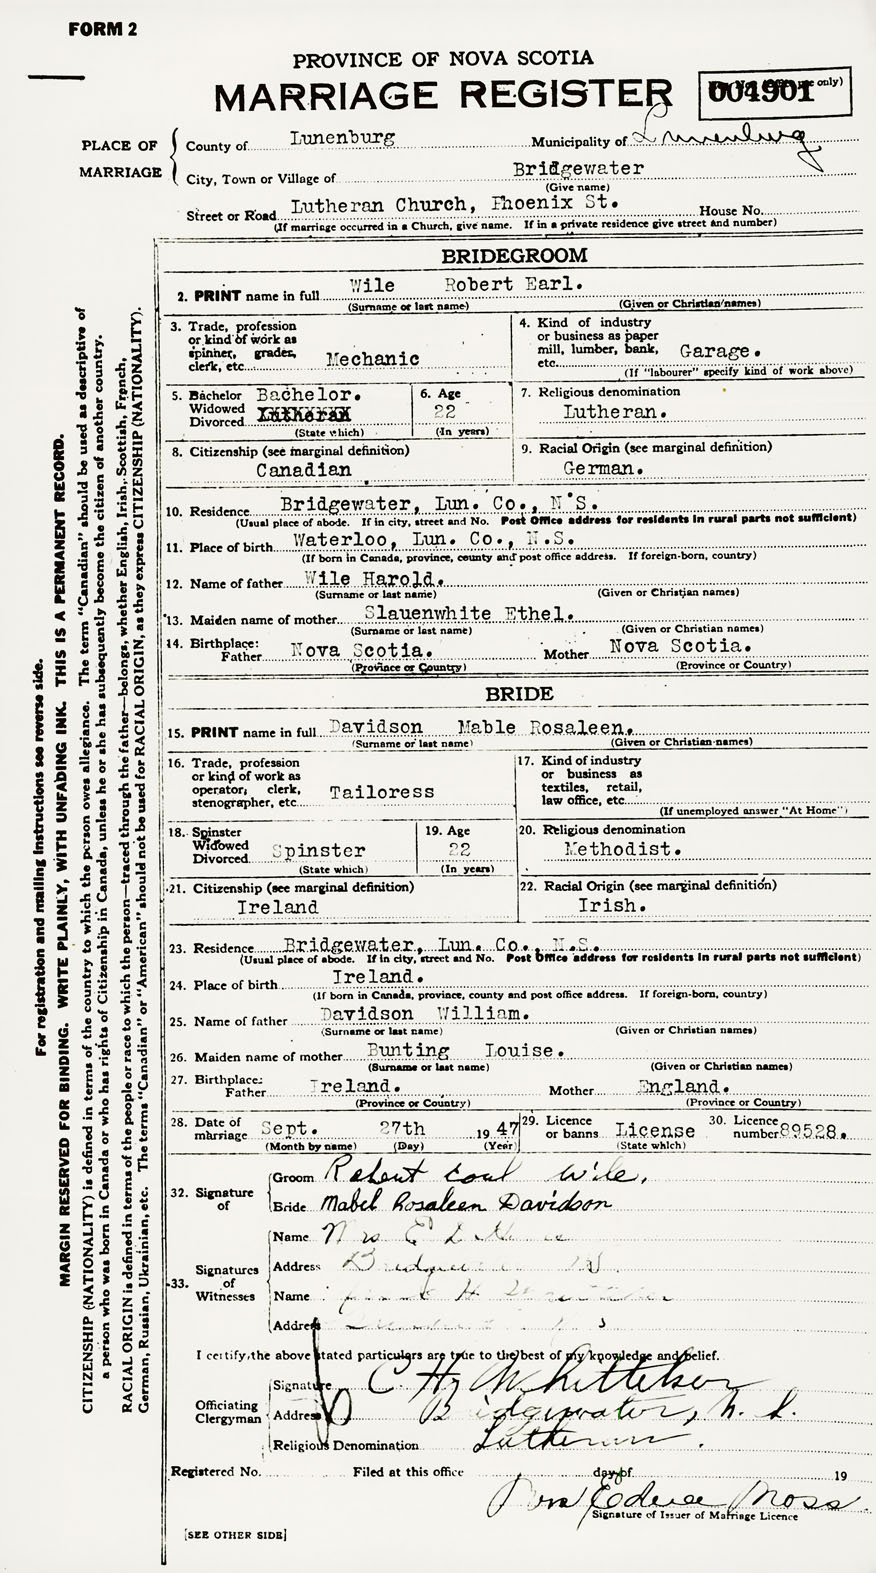 FORM 2
PROVINCE OF NOVA SCOTIA
MARRIAGE REGISTER
004901 use only)
PLACE OF MARRIAGE
County of Lunenburg Municipality of Lunenburg
City, Town or Village of Bridgewater
(Give name)
Street or Road Lutheran Church, Phoenix St. House No.
(If marriage occurred in a Church, give name. If in a private residence give street and number)
BRIDEGROOM
2. PRINT name in full Wile Robert Earl.
(Surname or last name) (Given or Christian names)
3. Trade, profession or kind of work as spinner, grader, clerk, etc. Mechanic
4. Kind of industry or business as paper mill, lumber, bank, etc. Garage.
(If "labourer" specify kind of work above)
5. Bachelor Widowed Divorced Bachelor. Lutheran
(State which)
6. Age 22
(In years)
7. Religious denomination
Lutheran.
8. Citizenship (see marginal definition)
Canadian
9. Racial Origin (see marginal definition)
German.
10. Residence Bridgewater, Lun. Co., N'S.
(Usual place of abode. If in city, street and No. Post Office address for residents in rural parts not sufficient)
11. Place of birth Waterloo, Lun. Co., N.S.
(If born in Canada, province, county and post office address. If foreign-born, country)
12. Name of father Wile Harold.
(Surname or last name) (Given or Christian names)
13. Maiden name of mother Slauenwhite Ethel.
(Surname or last name) (Given or Christian names)
14. Birthplace:
Father Nova Scotia. Mother Nova Scotia.
(Province or Country) (Province or Country)
BRIDE
15. PRINT name in full Davidson Mable Rosaleen.
(Surname or last name) (Given or Christian names)
16. Trade, profession or kind of work as operator, clerk, stenographer, etc. Tailoress
17. Kind of industry or business as textiles, retail, law office, etc.
(If unemployed answer "At Home")
18. Spinster Widowed Divorced Spinster
(State which)
19. Age 22
(In years)
20. Religious denomination
Methodist.
21. Citizenship (see marginal definition)
Ireland
22. Racial Origin (see marginal definition)
Irish.
23. Residence Bridgewater, Lun. Co., N.S.
(Usual place of abode. If in city, street and No. Post Office address for residents in rural parts not sufficient)
24. Place of birth Ireland.
(If born in Canada, province, county and post office address. If foreign-born, country)
25. Name of father Davidson William.
(Surname or last name) (Given or Christian names)
26. Maiden name of mother Bunting Louise.
(Surname or last name) (Given or Christian names)
27. Birthplace:
Father Ireland. Mother England.
(Province or Country) (Province or Country)
28. Date of marriage Sept. 27th 1947
(Month by name) (Day) (Year)
29. Licence or banns License
(State which)
30. Licence number 89528.
32. Signature of
Groom Robert Earl Wile.
Bride Mabel Rosaleen Davidson
33. Signatures of Witnesses
Name Mrs E
Address
Name
Address
I certify the above stated particulars are true to the best of my knowledge and belief.
Officiating Clergyman
Signature C. H. Whitteker
Address Bridgewater, N. S.
Religious Denomination Lutheran.
Registered No. Filed at this office day of 19
Mrs Moss.
Signature of Issuer of Marriage Licence
[SEE OTHER SIDE]
For registration and mailing instructions see reverse side.
MARGIN RESERVED FOR BINDING. WRITE PLAINLY, WITH UNFADING INK. THIS IS A PERMANENT RECORD.
CITIZENSHIP (NATIONALITY) is defined in terms of the country to which the person owes allegiance. The term "Canadian" should be used as descriptive of
a person who was born in Canada or who has rights of Citizenship in Canada, unless he or she has subsequently become the citizen of another country.
RACIAL ORIGIN is defined in terms of the people or race to which the person—traced through the father—belongs, whether English, Irish, Scottish, French,
German, Russian, Ukrainian, etc. The terms "Canadian" or "American" should not be used for RACIAL ORIGIN, as they express CITIZENSHIP (NATIONALITY).